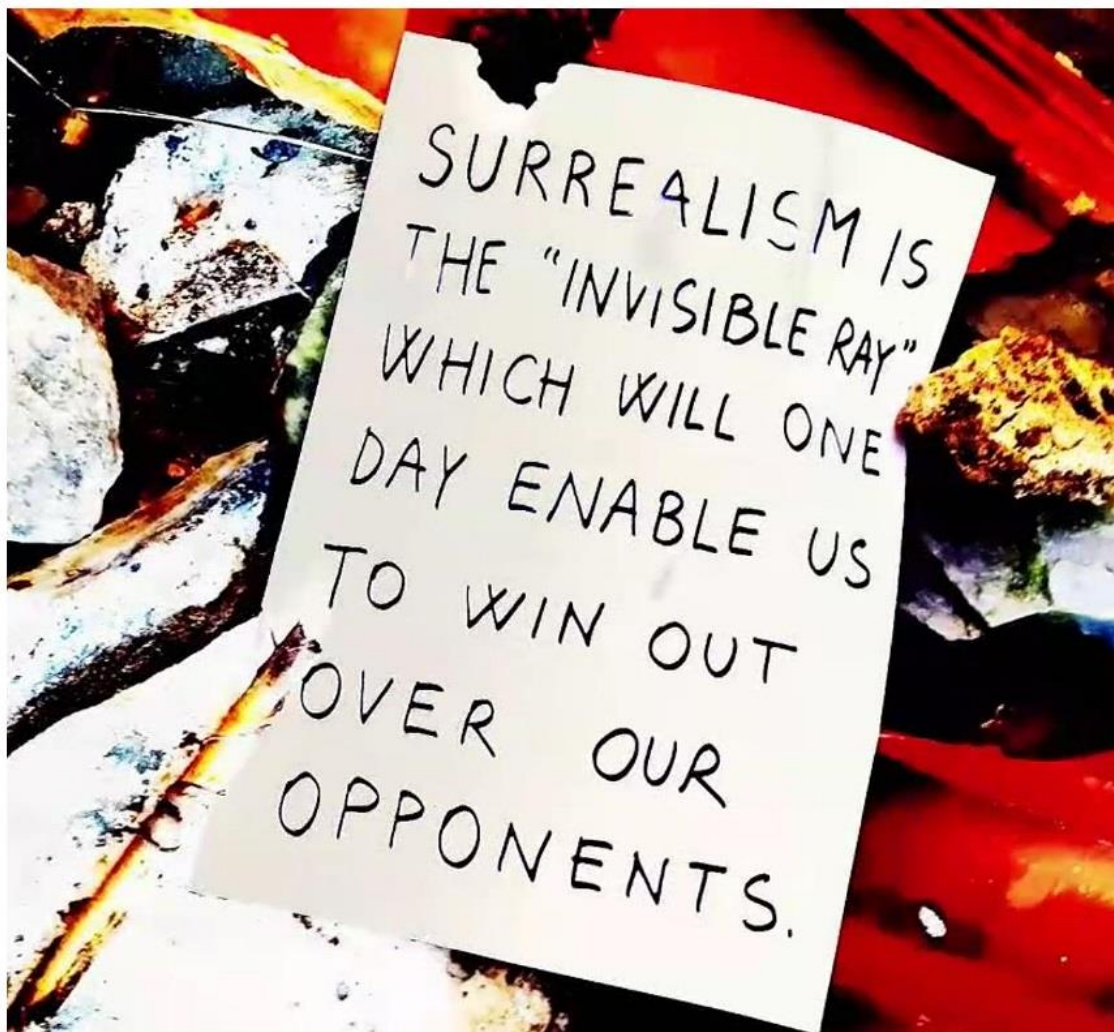 SURREALISM IS
THE "INVISIBLE RAY"
WHICH WILL ONE
DAY ENABLE US
TO WIN OUT
OVER OUR
OPPONENTS.